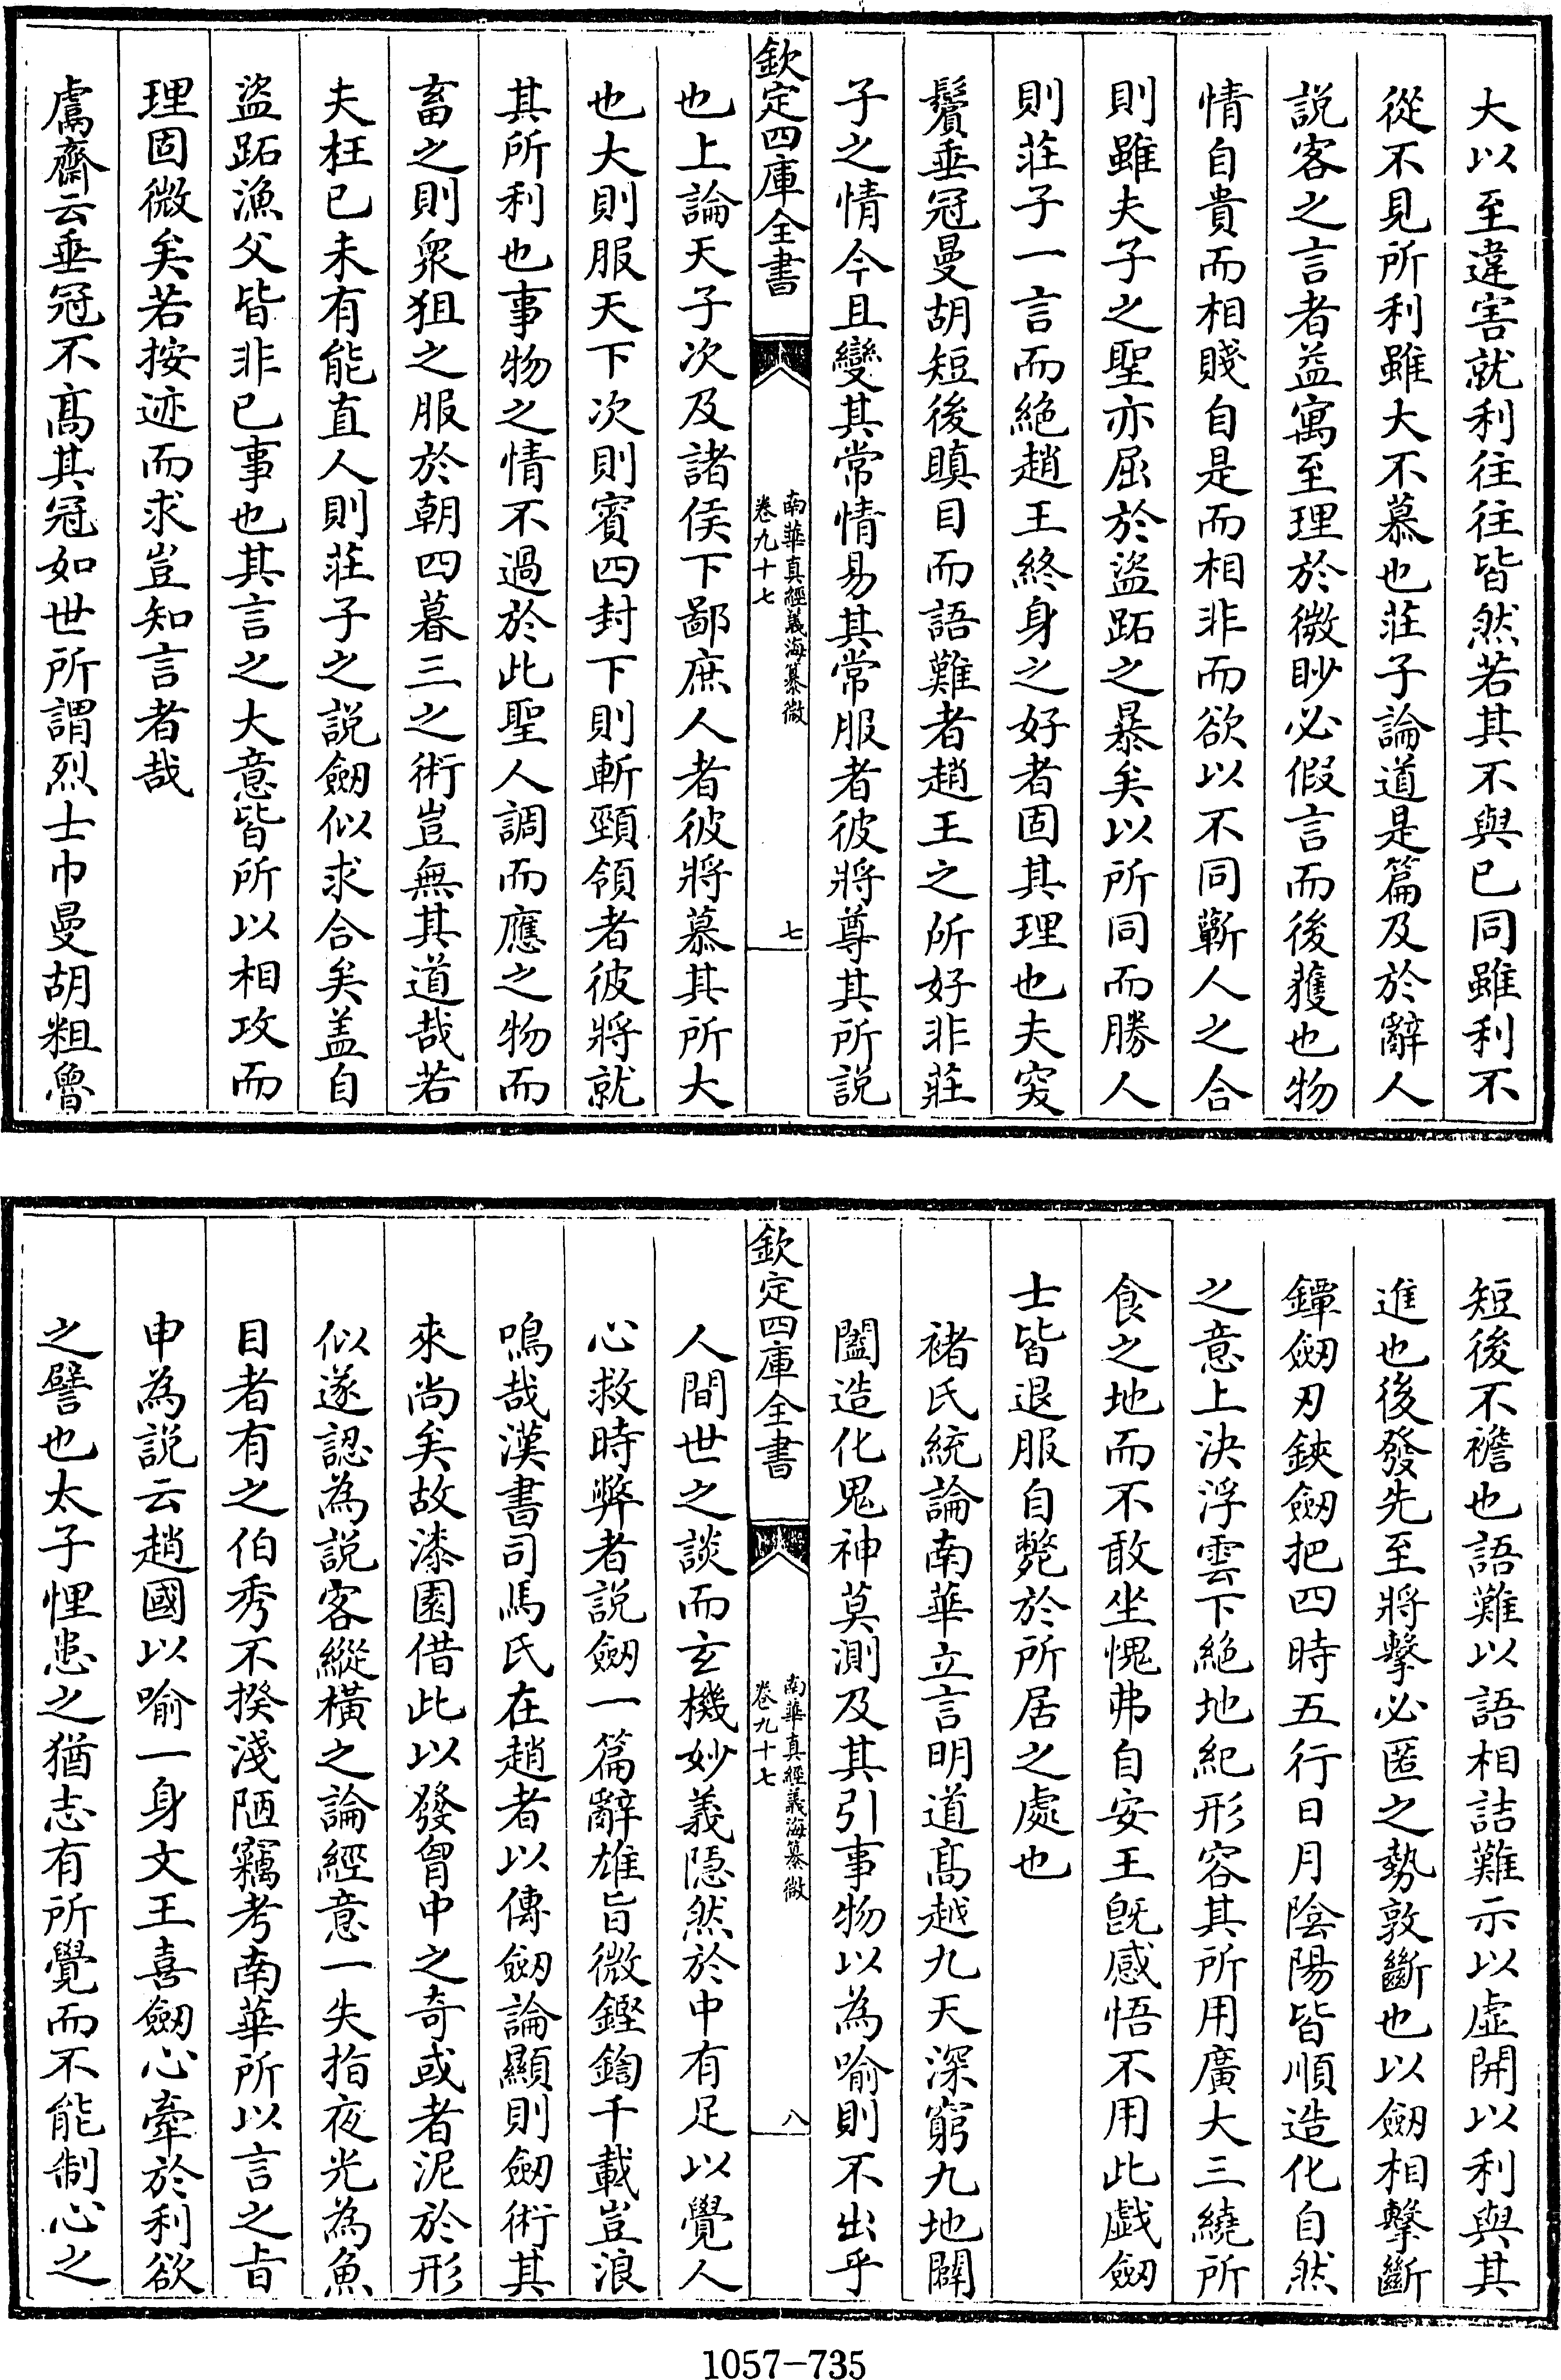 大以至違害就利往往皆然若其不與已同雖利不
從不見所利雖大不慕也莊子論道是篇及於辭人
說客之言者益寓至理於微眇必假言而後獲也物
情自貴而相賤自是而相非而欲以不同蘄人之合
則雖夫子之聖亦屈於盜跖之暴矣以所同而勝人
則莊子一言而絶趙王終身之好者固其理也夫突
鬢垂冠曼胡短後瞋目而語難者趙王之所好非莊
子之情今且變其常情易其常服者彼將尊其所説
欽定四庫全書
南華真經義海纂微
卷九十七
七
也上論天子次及諸侯下鄙庶人者彼將慕其所大
也大則服天下次則賓四封下則斬頸領者彼將就
其所利也事物之情不過於此聖人調而應之物而
畜之則衆狙之服於朝四暮三之術豈無其道哉若
夫枉已未有能直人則莊子之說劒似求合矣盖自
盜跖漁父皆非已事也其言之大意皆所以相攻而
理固微矣若按迹而求豈知言者哉
鬳齋云垂冠不髙其冠如世所謂烈士巾曼胡粗魯
短後不襜也語難以語相詰難示以虛開以利與其
進也後發先至將擊必匿之勢敦斷也以劒相擊斷
鐔劒刃鋏劒把四時五行日月陰陽皆順造化自然
之意上決浮雲下絶地紀形容其所用廣大三繞所
食之地而不敢坐愧弗自安王既感悟不用此戯劒
士皆退服自斃於所居之處也
褚氏統論南華立言明道髙越九天深窮九地闢
闔造化鬼神莫測及其引事物以為喻則不出乎
欽定四庫全書
南華真經義海纂微
卷九十七
八
人間世之談而玄機妙義隠然於中有足以覺人
心救時弊者說劒一篇辭雄旨微鏗鍧千載豈浪
鳴哉漢書司馬氏在趙者以傳劒論顯則劒術其
來尚矣故漆園借此以發胷中之奇或者泥於形
似遂認為説客縱横之論經意一失指夜光為魚
目者有之伯秀不揆淺陋竊考南華所以言之㫖
申為説云趙國以喻一身文王喜劒心牽於利欲
之譬也太子悝患之猶志有所覺而不能制心之
1057-735